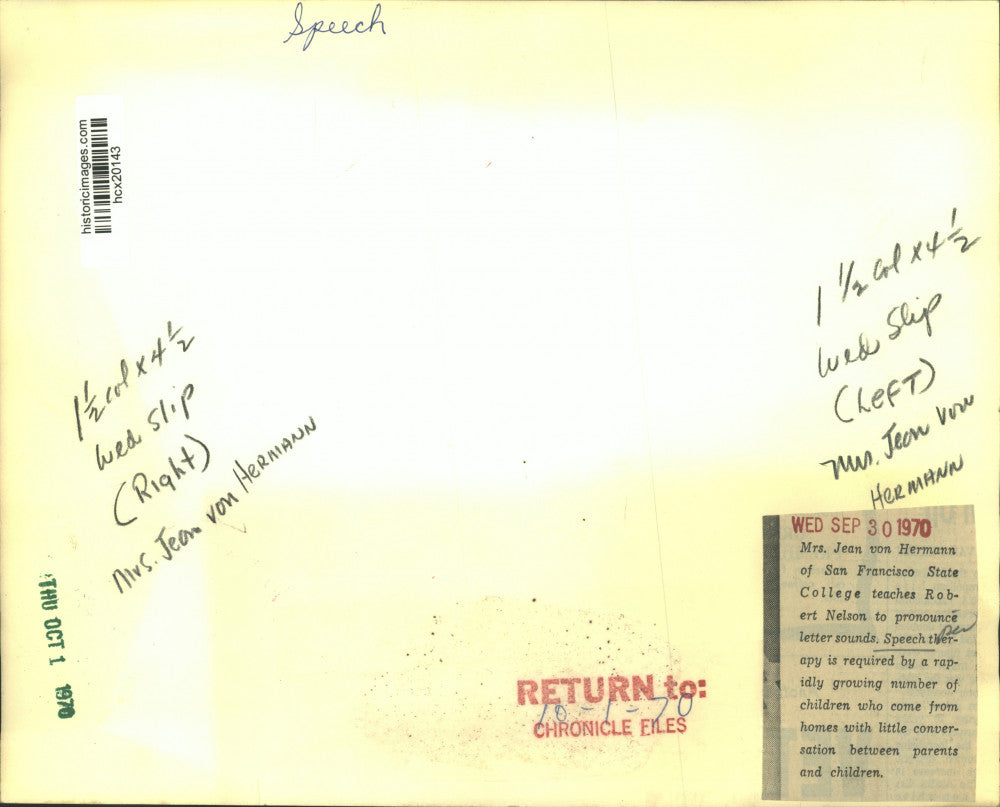 Speech
historicimages.com
hcx20143
1 1/2 col x 4 1/2
Wed Slip
(Right)
Mrs. Jean von HERMANN
1 1/2 col x 4 1/2
Wed Slip
(LEFT)
Mrs. Jean von
HERMANN
THU OCT 1 1970
RETURN to:
10-1-70
CHRONICLE FILES
WED SEP 30 1970
Mrs. Jean von Hermann
of San Francisco State
College teaches Rob-
ert Nelson to pronounce
letter sounds. Speech ther-
apy is required by a rap-
idly growing number of
children who come from
homes with little conver-
sation between parents
and children.